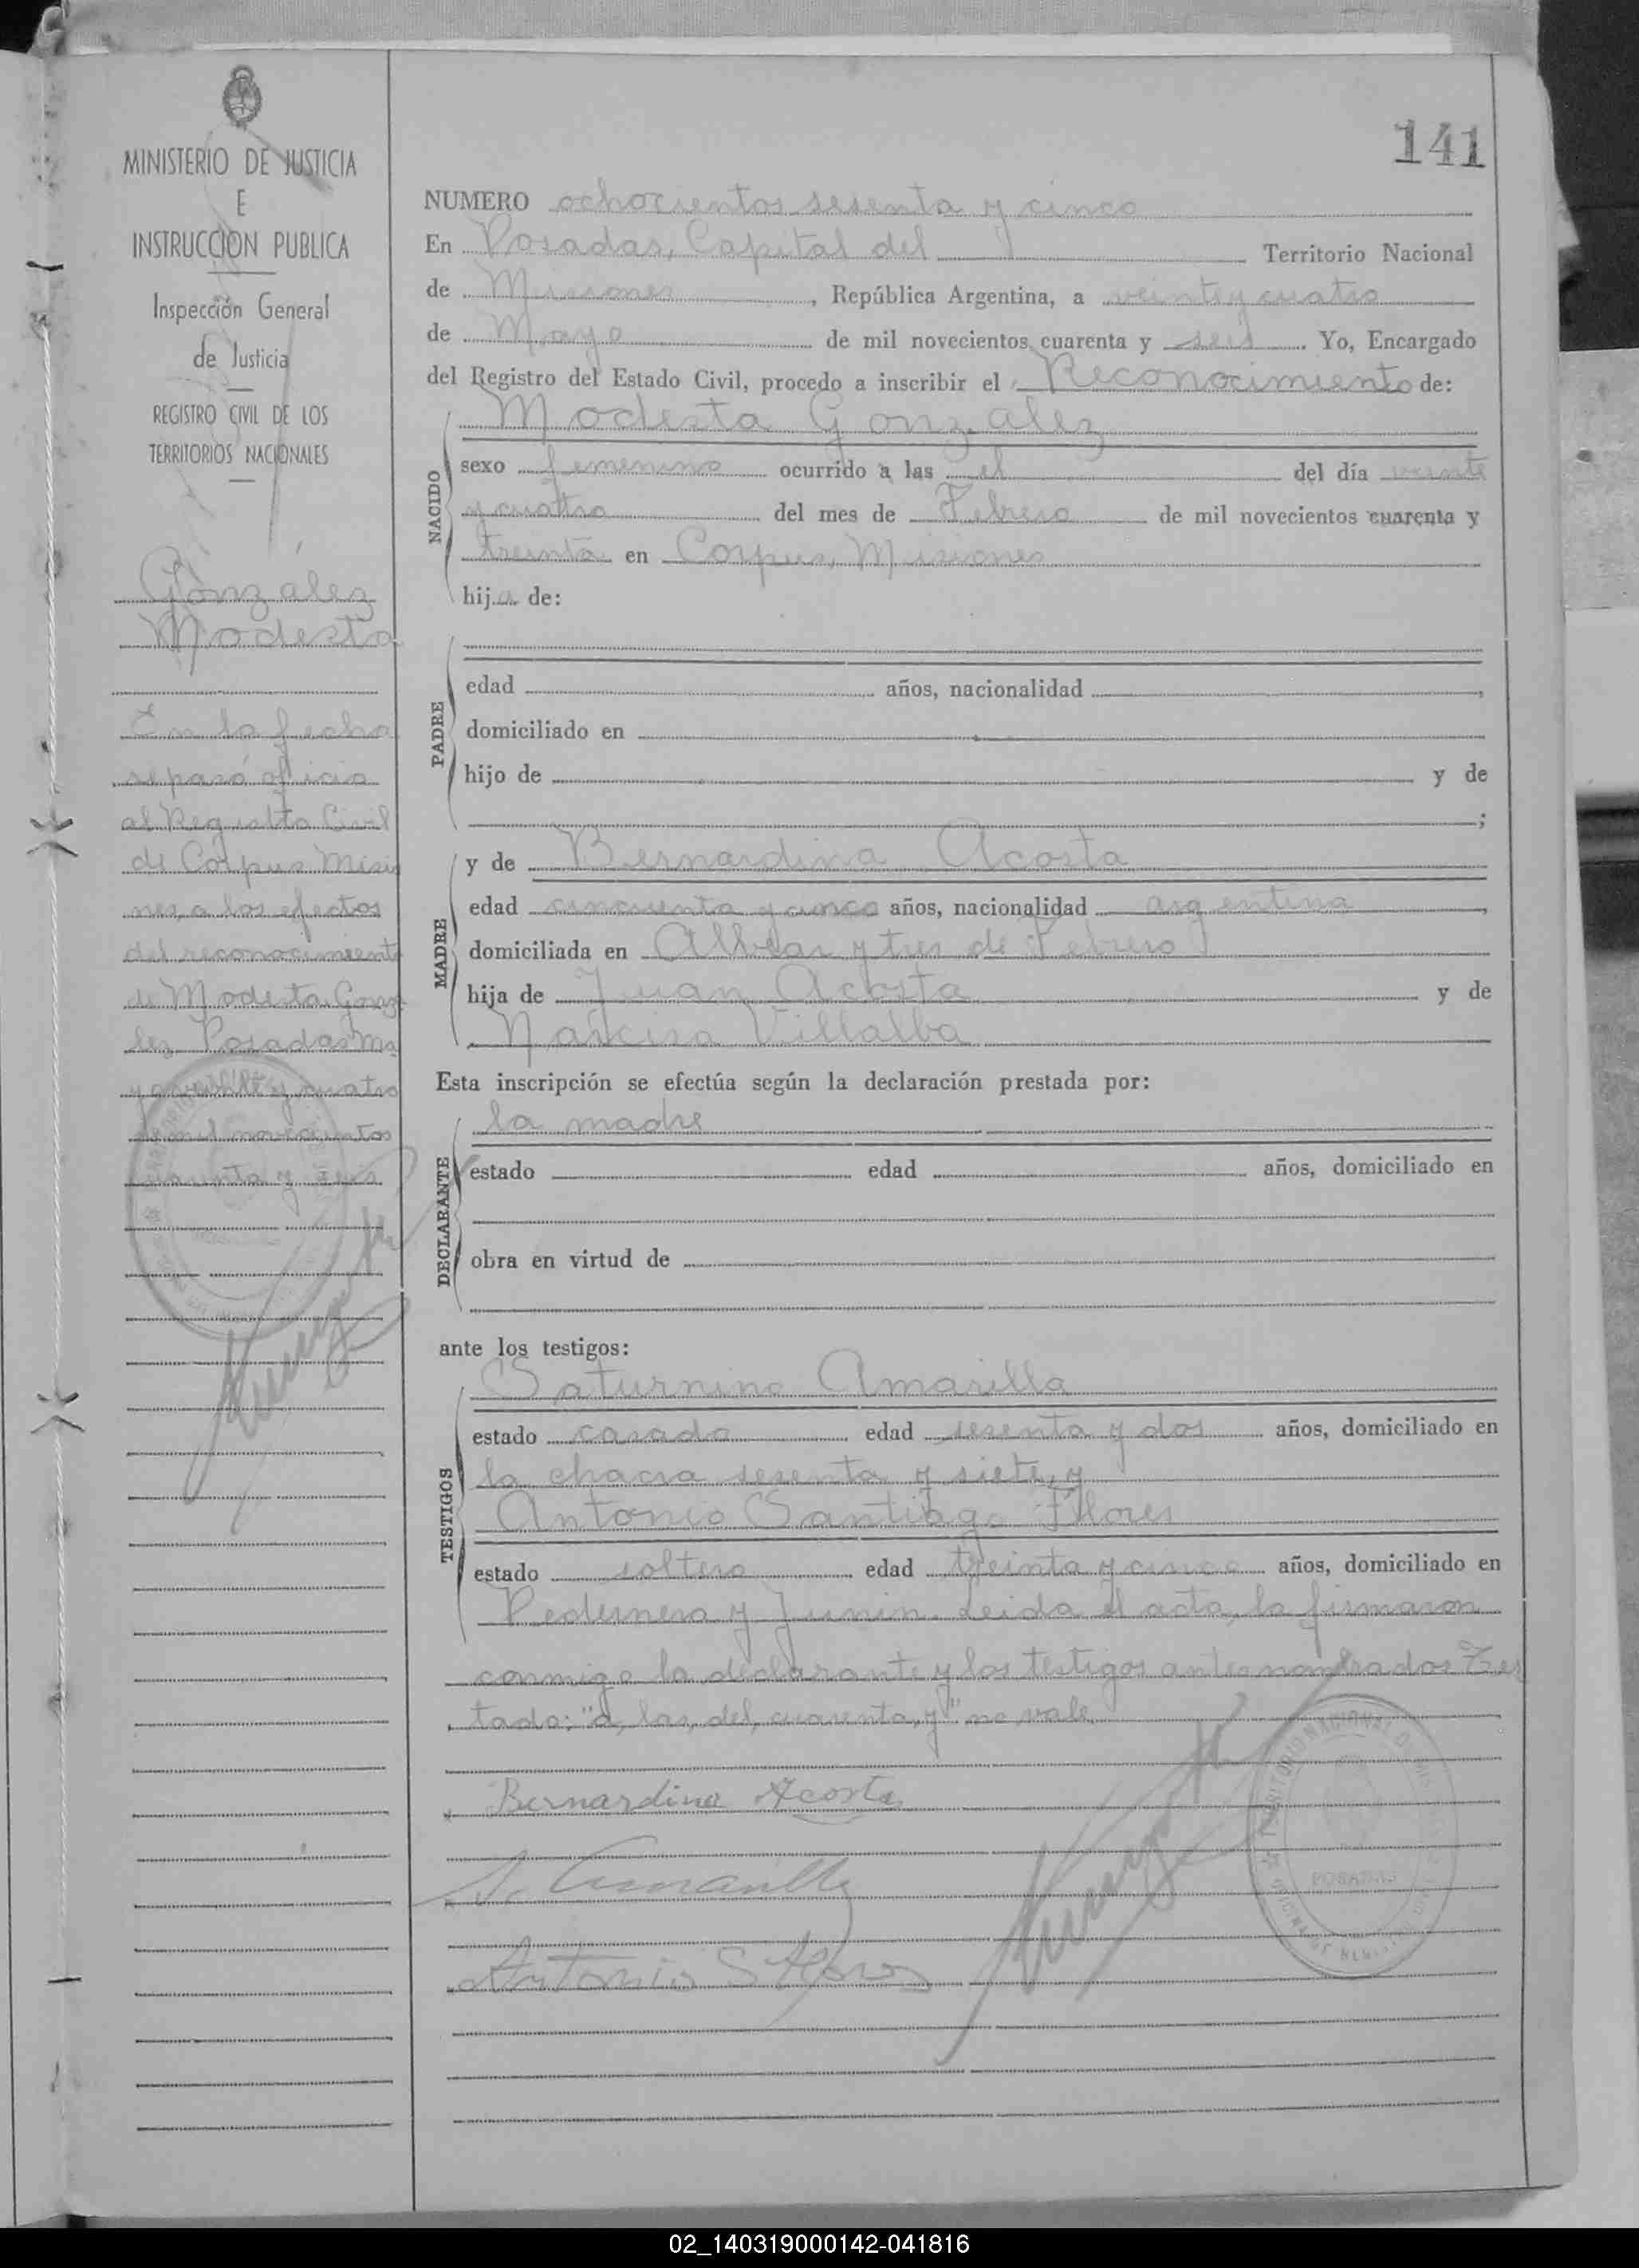 MINISTERIO DE JUSTICIA
E
INSTRUCCION PUBLICA
Inspección General
de Justicia
REGISTRO CIVIL DE LOS
TERRITORIOS NACIONALES
González
Modesta
En la fecha
se pasó oficio
al Registro Civil
de Corpus Misio
nes, a los efectos
del reconocimiento
de Modesta Gonzá
lez Posadas Ma
yo veinte y cuatro
de mil novecientos
cuarenta y seis
141
NUMERO ochocientos sesenta y cinco
En Posadas, Capital del Territorio Nacional
de Misiones, República Argentina, a veinte y cuatro
de Mayo de mil novecientos cuarenta y seis. Yo, Encargado
del Registro del Estado Civil, procedo a inscribir el Reconocimiento de:
Modesta González
NACIDO
sexo femenino ocurrido a las el del día veinte
y cuatro del mes de Febrero de mil novecientos cuarenta y
treinta en Corpus, Misiones
hija de:
PADRE
edad años, nacionalidad ,
domiciliado en
hijo de y de
;
MADRE
y de Bernardina Acosta
edad cincuenta y cinco años, nacionalidad argentina,
domiciliada en Alvear y tres de Febrero
hija de Juan Acosta y de
Narcisa Villalba
Esta inscripción se efectúa según la declaración prestada por:
la madre
DECLARANTE
estado edad años, domiciliado en
obra en virtud de
ante los testigos:
Saturnino Amarilla
TESTIGOS
estado casado edad sesenta y dos años, domiciliado en
la chacra sesenta y siete, y
Antonio Santiago Flores
estado soltero edad treinta y cinco años, domiciliado en
Pedernera y Junin. Leida el acta, la firmaron
conmigo la declarante y los testigos antes nombrados Tes
tado: "a, las, del, cuarenta, y" no vale
Bernardina Acosta
S. Amarilla
Antonio S Flores
POSADAS
02_140319000142-041816